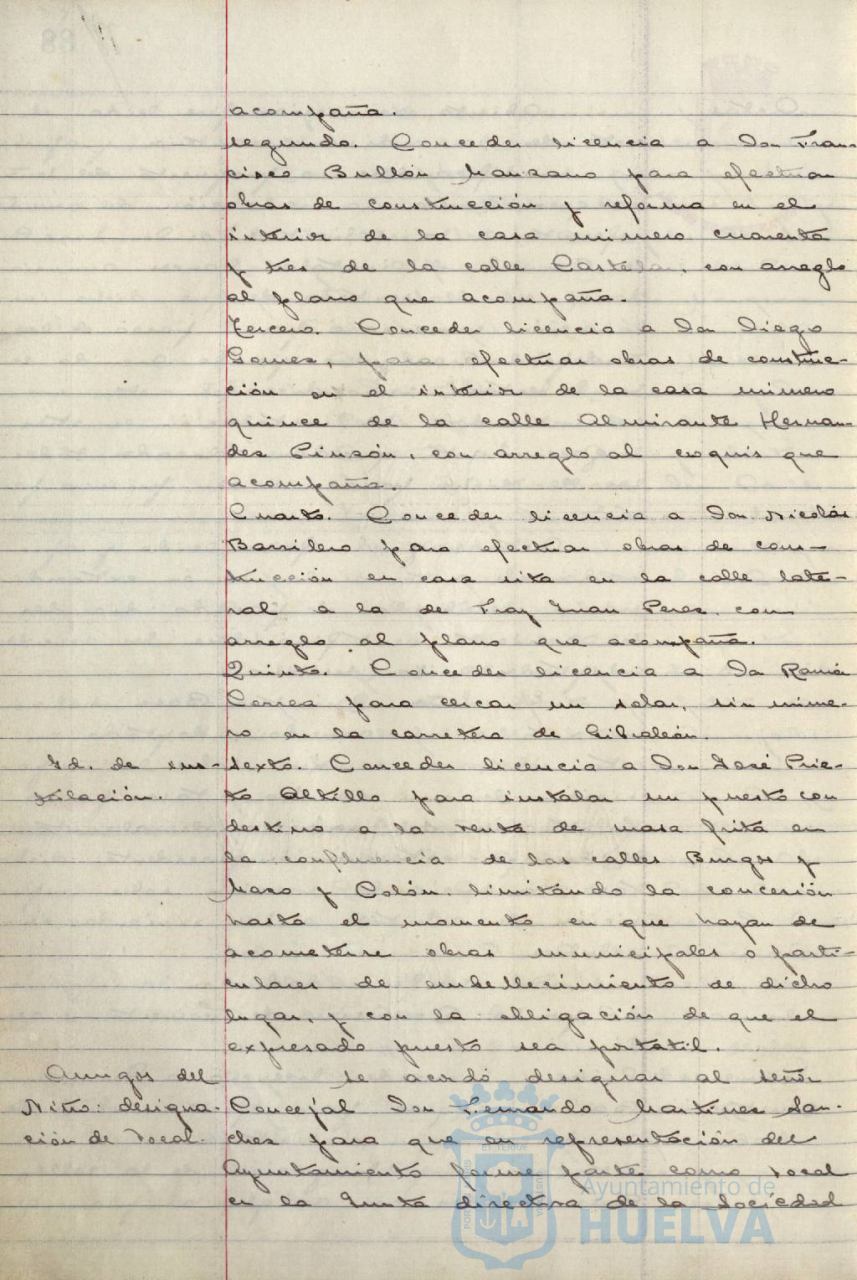 acompaña.
Segundo. Conceder licencia a Don Fran-
cisco Bullón Manzano para efectuar
obras de construcción y reforma en el
interior de la casa número cuarenta
y tres de la calle Castelar, con arreglo
al plano que acompaña.
Tercero. Conceder licencia a Don Diego
Gomez, para efectuar obras de construc-
ción en el interior de la casa número
quince de la calle Almirante Hernan-
dez Pinzón, con arreglo al croquis que
acompaña.
Cuarto. Conceder licencia a Don Nicolás
Barrilero para efectuar obras de cons-
trucción en casa sita en la calle late-
ral a la de Fray Juan Perez, con
arreglo al plano que acompaña.
Quinto. Conceder licencia a Dª Ramó
Correa para cercar un solar, sin núme-
ro en la carretera de Gibraleón.
Id. de ins-
talación.
Sexto. Conceder licencia a Don José Prie-
to Altillo para instalar un puesto con
destino a la venta de masa frita en
la confluencia de las calles Burgos y
Mazo y Colón, limitando la concesión
hasta el momento en que hayan de
acometerse obras municipales o parti-
culares de embellecimiento de dicho
lugar, y con la obligación de que el
expresado puesto sea portatil.
Amigos del
Niño: designa-
ción de Vocal.
Se acordó designar al señor
Concejal Don Fernando Martinez San-
chez para que en representación del
Ayuntamiento forme parte como vocal
en la Junta directiva de la Sociedad
Ayuntamiento de
HUELVA